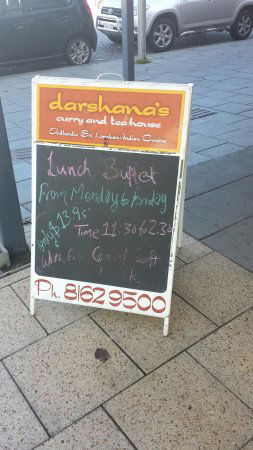 darshana's
curry and tea house
Authentic Sri Lankan-Indian Cuisine
Lunch Buffet
From Monday to Friday
only $13.95
Time 11:30 to 2.30
Soft
Ph. 8162 9500